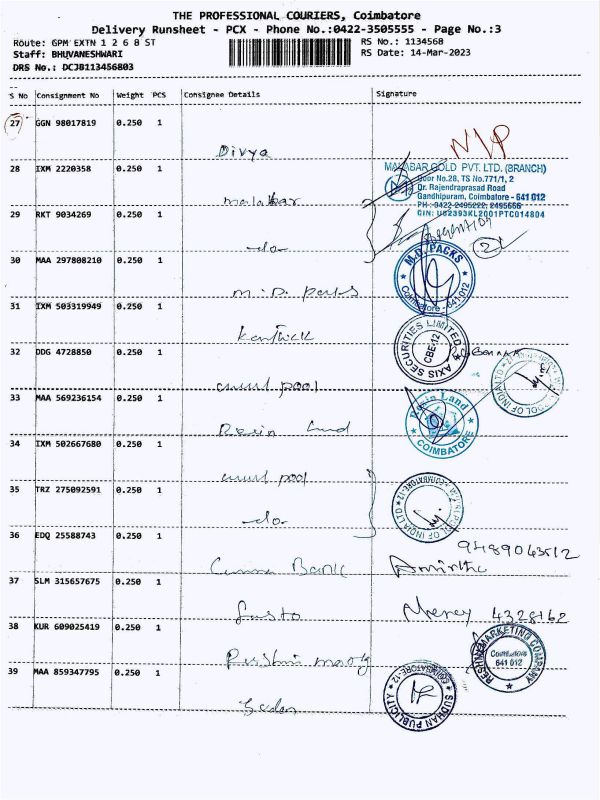 THE PROFESSIONAL COURIERS, Coimbatore
Delivery Runsheet - PCX - Phone No.:0422-3505555 - Page No.:3
Route: GPM EXTN 1 2 6 8 ST
RS No.: 1134568
Staff: BHUVANESHWARI
RS Date: 14-Mar-2023
DRS No.: DCJB113456803
S No Consignment No Weight PCS Consignee Details Signature
27 GGN 98017819 0.250 1
Divya
28 IXM 2220358 0.250 1
Malabar
MALABAR GOLD PVT. LTD. (BRANCH)
Door No.28, TS No.771/1, 2
Dr. Rajendraprasad Road
Gandhipuram, Coimbatore - 641 012
PH: 0422-2495222, 2495666
CIN: U52393KL2001PTC014804
29 RKT 9034269 0.250 1
-do-
2
30 MAA 297808210 0.250 1
M.D. Packs
M.D. PACKS
Coimbatore - 641 012
31 IXM 503319949 0.250 1
32 DDG 4728850 0.250 1
AXIS SECURITIES LIMITED
CBE-12
33 MAA 569236154 0.250 1
Resin Land
Resin Land
COIMBATORE
34 IXM 502667680 0.250 1
35 TRZ 275092591 0.250 1
-do-
36 EDQ 25588743 0.250 1
Bank
Amirtha
9489043512
37 SLM 315657675 0.250 1
Mercy 4328162
38 KUR 609025419 0.250 1
RESHMI MARKETING COMPANY
Coimbatore
641 012
39 MAA 859347795 0.250 1
SUDHAN PUBLICITY
COIMBATORE-12